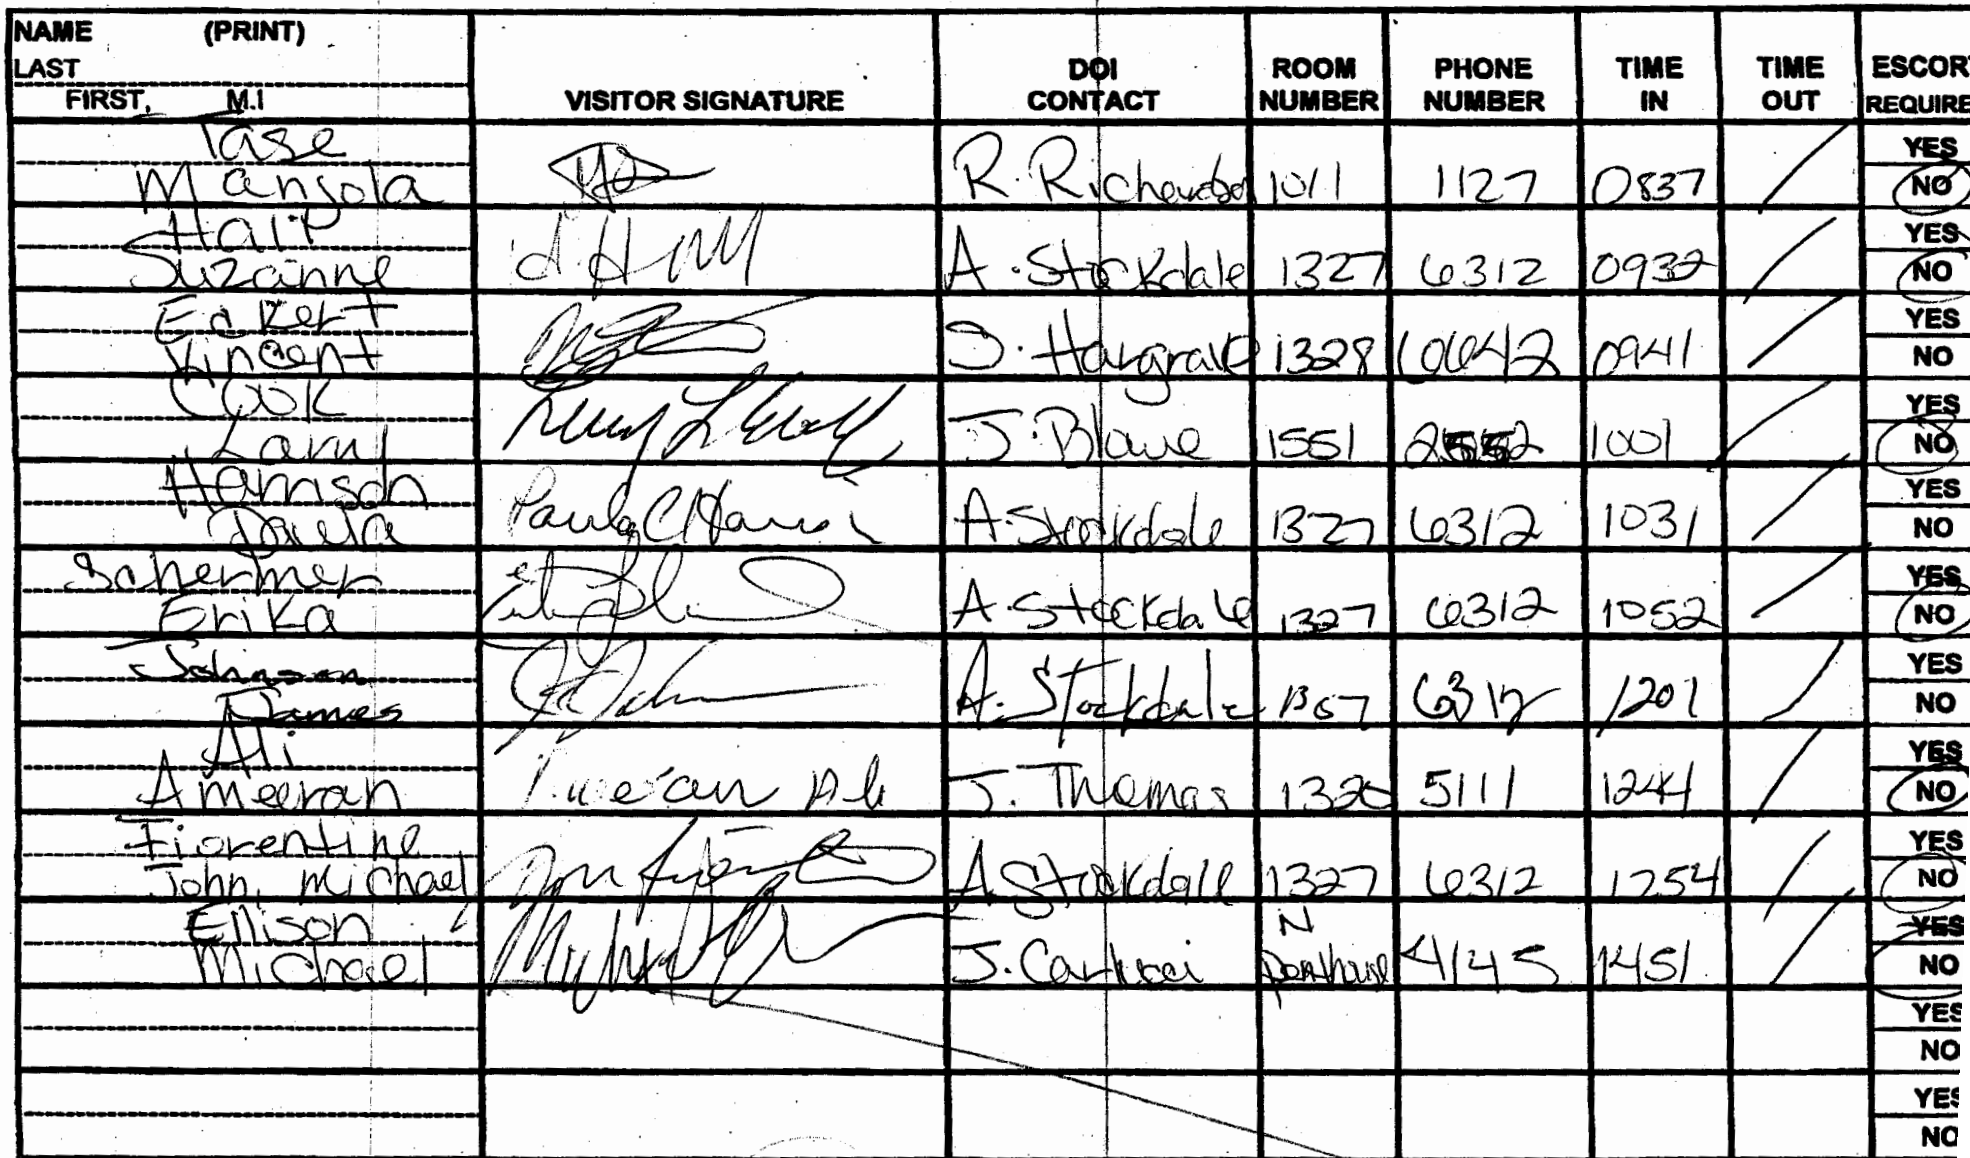 NAME (PRINT)
LAST
FIRST, M.I
VISITOR SIGNATURE
DOI CONTACT
ROOM NUMBER
PHONE NUMBER
TIME IN
TIME OUT
ESCOR
REQUIRE
Tase
Mansola R. 1011 1127 0837 YES NO
Haip
Suzanne A. Stockdale 1327 6312 0932 YES NO
Eckert
Vincent S. Hargrave 1328 6642 0941 YES NO
Cook
Larry J. 1551 1001 YES NO
Harrison
Paula C A. Stockdale 1327 6312 1031 YES NO
Schermer
Erika A. Stockdale 1327 6312 1052 YES NO
Johnson
James A. Stockdale 6312 1201 YES NO
Ali
Ameeran J. Thomas 1320 5111 1241 YES NO
Fiorentine
John, Michael A Stockdale 1327 6312 1254 YES NO
Ellison
Michael J. N Penthouse 4145 1451 YES NO
YES
NO
YES
NO